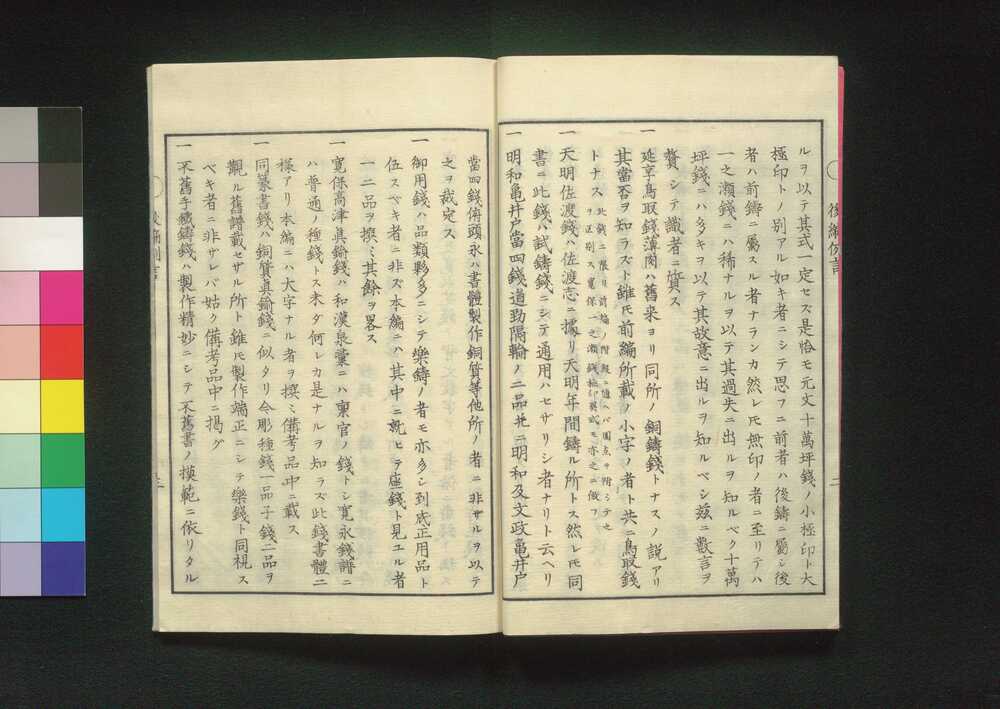 後編例言
ルヲ以テ其式一定セス是恰モ元文十萬坪錢ノ小極印ト大
極印トノ別アル如キ者ニシテ思フニ前者ハ後鑄ニ屬シ後
者ハ前鑄ニ屬スル者ナランカ然レ𪜈無印ノ者ニ至リテハ
一之瀬錢ニハ稀ナルヲ以テ其過失ニ出ルヲ知ルベク十萬
坪錢ニハ多キヲ以テ其故意ニ出ルヲ知ルベシ茲ニ數言ヲ
贅シテ識者ニ質ス
一延享鳥取錢薄肉ハ舊来ヨリ同所ノ銅鑄錢トナスノ説アリ
其當否ヲ知ラズト雖𪜈前編所載ノ小字ノ者ト共ニ鳥取錢
トナス此錢ニ限リ前編ノ階級ニ随ヘバ圏点ヲ附シテ之
ヲ区別ス寛保一之瀬錢極印異式モ亦之ニ倣フ
一天明佐渡錢ハ佐渡志ニ據リ天明年間鑄ル所トス然レ𪜈同
書ニ此錢ハ試鑄錢ニシテ通用ハセザリシ者ナリト云ヘリ
一明和亀井戸當四錢遒勁隔輪ノ二品並ニ明和及文政亀井戸
當四錢俯頭永ハ書體製作銅質等他所ノ者ニ非ザルヲ以テ
之ヲ裁定ス
一御用錢ハ品類夥多ニシテ樂鑄ノ者モ亦多シ到底正用品ト
伍スベキ者ニ非ズ本編ニハ其中ニ就ヒテ座錢ト見ユル者
一二品ヲ撰ミ其餘ヲ畧ス
一寛保高津眞鍮錢ハ和漢泉彙ニハ稟官ノ錢トシ寛永錢譜ニ
ハ普通ノ種錢トス未ダ何レカ是ナルヲ知ラズ此錢書體二
様アリ本編ニハ大字ナル者ヲ撰ミ備考品中ニ載ス
一同篆書錢ハ銅質眞鍮錢ニ似タリ今彫種錢一品子錢二品ヲ
觀ル舊譜載セザル所ト雖𪜈製作端正ニシテ樂錢ト同視ス
ベキ者ニ非サレバ姑ク備考品中ニ揭グ
一不舊手鐵鑄錢ハ製作精妙ニシテ不舊書ノ模範ニ依リタル
後編例言